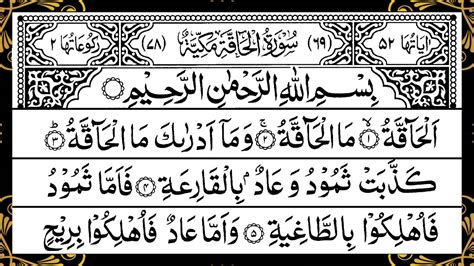 اٰيَاتُهَا ٥٢ (٦٩) سُوْرَةُ الْحَآقَّةِ مَكِّيَّةٌ (٧٨) رُكُوْعَاتُهَا ٢
بِسْمِ اللّٰهِ الرَّحْمٰنِ الرَّحِيْمِ
اَلْحَآقَّةُ ۙ‏﴿۱﴾ مَا الْحَآقَّةُ ۚ‏﴿۲﴾ وَمَاۤ اَدْرٰىكَ مَا الْحَآقَّةُ ؕ‏﴿۳﴾
كَذَّبَتْ ثَمُوْدُ وَ عَادٌۢ بِالْقَارِعَةِ ﴿۴﴾ فَاَمَّا ثَمُوْدُ
فَاُهْلِكُوْا بِالطَّاغِيَةِ ﴿۵﴾ وَاَمَّا عَادٌ فَاُهْلِكُوْا بِرِيْحٍ